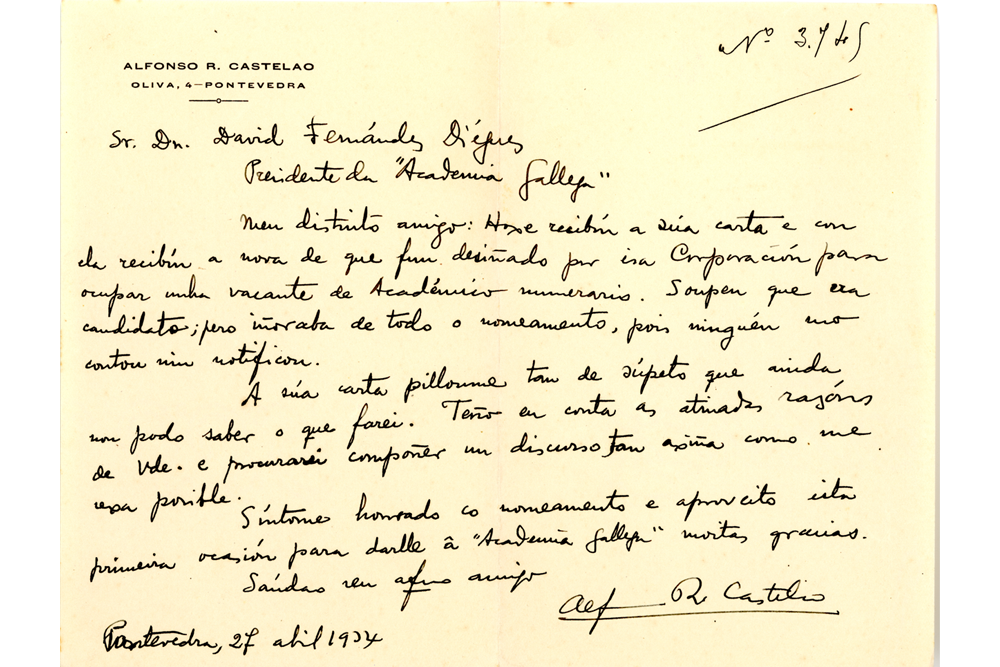 ALFONSO R. CASTELAO
OLIVA, 4—PONTEVEDRA
Nº 3.745
Sr. Dn. David Fernández Diéguez
Presidente da "Academia Gallega"
Meu distinto amigo: Hoxe recibín a súa carta e con
ela recibín a nova de que fun desiñado por isa Corporación para
ocupar unha vacante de Académico numerario. Soupen que era
candidato; pero iñoraba de todo o nomeamento, pois ninguén mo
contou nin notificou.
A súa carta pilloume tan de súpeto que ainda
non podo saber o que farei. Teño en conta as atinadas razóns
de Vde. e procurarei compoñer un discurso tan axiña como me
sexa posible.
Síntome honrado co nomeamento e aproveito ista
primeira ocasión para darlle â "Academia Gallega" moitas gracias.
Saúdao seu afmo amigo
Alf R. Castelao
Pontevedra, 27 abil 1934